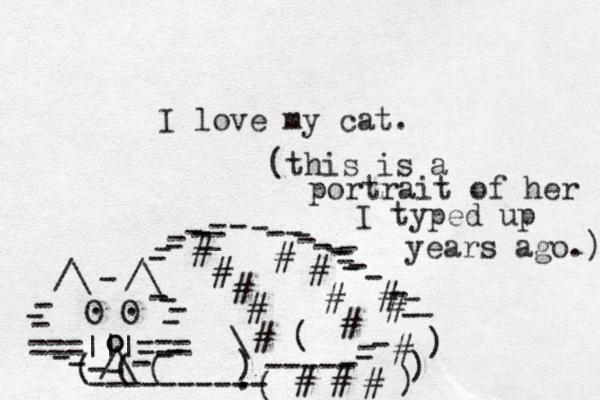 I love my cat.
(this is a
portrait of her
I typed up
years ago.)